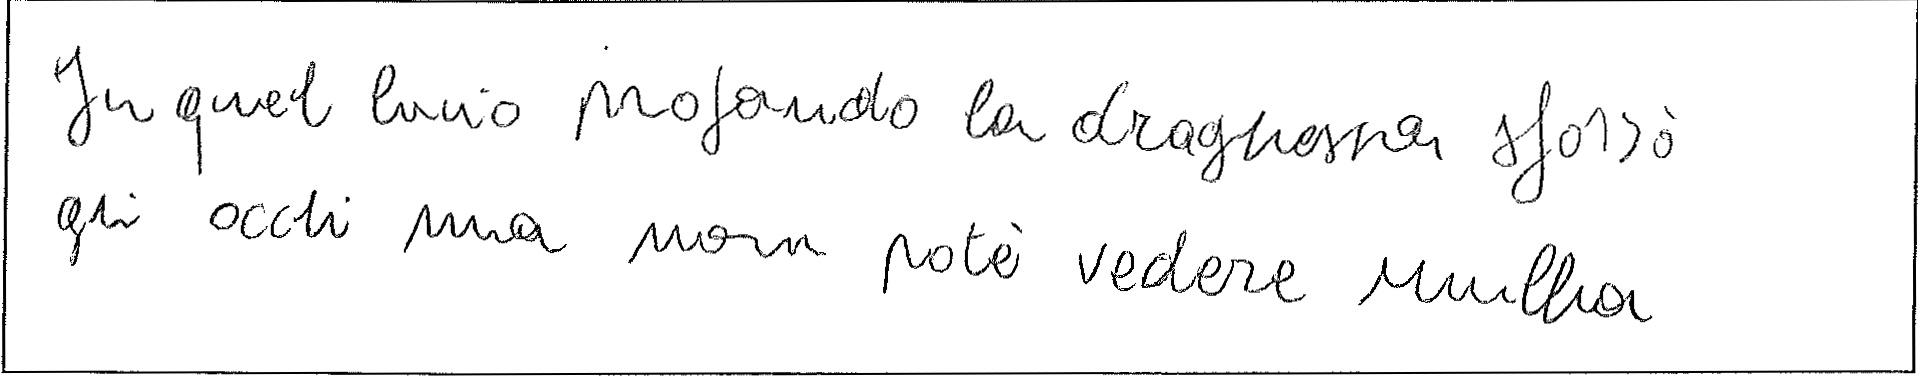 In quel buio profondo la dragonessa sforzò
gli occhi ma non potè vedere nulla